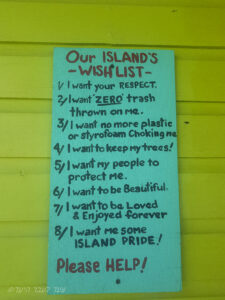 Our ISLAND'S
-WISH LIST-
1/ I want your RESPECT.
2/ I want "ZERO" trash
thrown on me.
3/ I want no more plastic
or styrofoam Choking me
4/ I want to keep my trees!
5/ I want my people to
protect me.
6/ I want to be Beautiful.
7/ I want to be Loved
& Enjoyed forever
8/ I want me some
ISLAND PRIDE!
Please HELP!